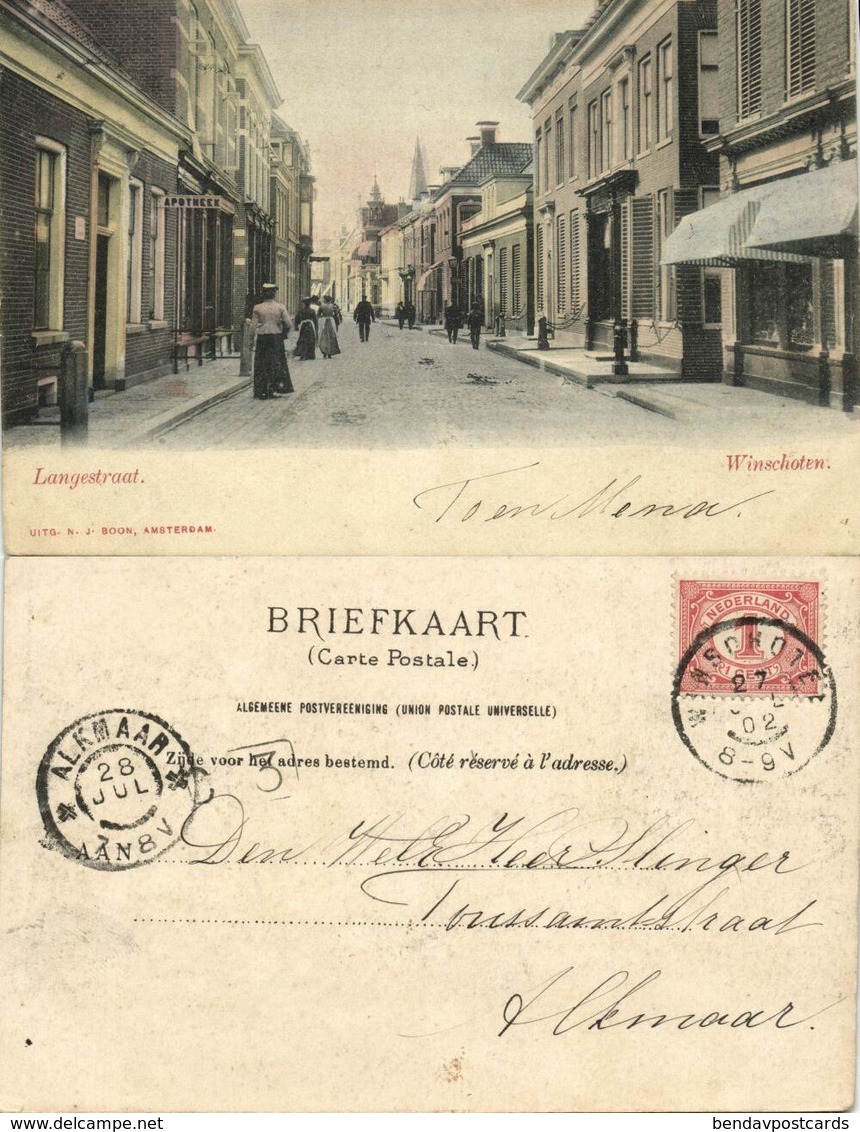 APOTHEEK
Langestraat.
Winschoten.
Toen Mena.
UITG. N. J. BOON, AMSTERDAM.
BRIEFKAART.
(Carte Postale.)
ALGEMEENE POSTVEREENIGING (UNION POSTALE UNIVERSELLE)
Zijde voor het adres bestemd. (Côté réservé à l'adresse.)
NEDERLAND
1
CENT
WINSCHOTEN
27
02
8-9V
ALKMAAR
28
JUL
7-8V
3
AAN
Den WelE Heer Slinger
Toussaintstraat
Alkmaar.
delcampe.net
bendavpostcards